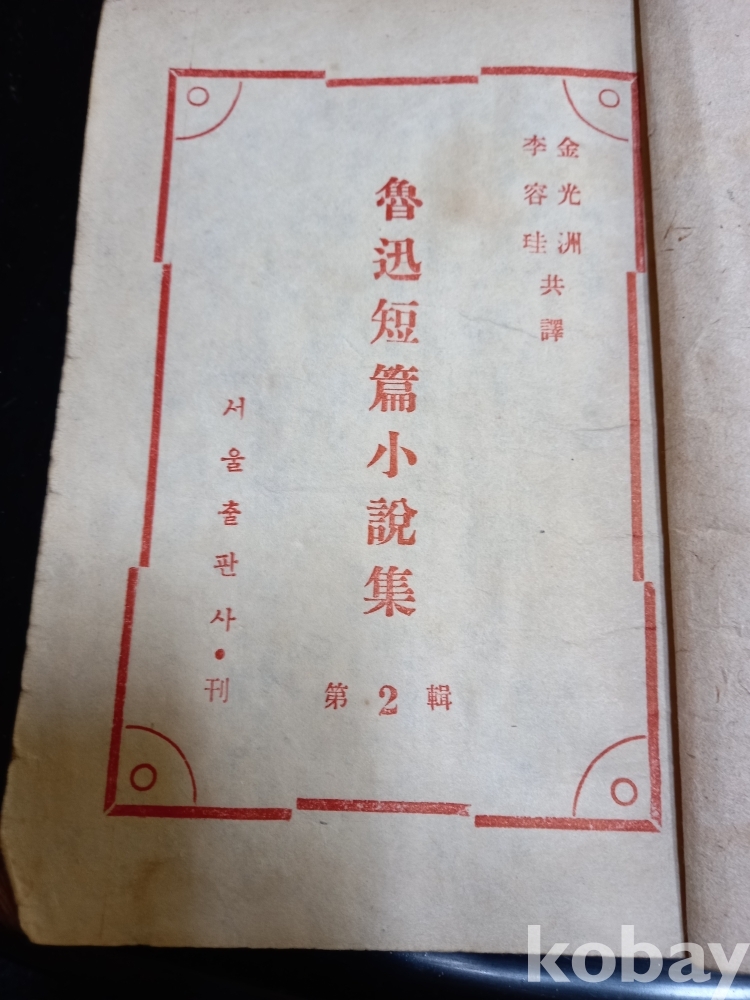 金光洲
李容珪
共譯
魯迅短篇小說集
第2輯
서울출판사·刊
kobay